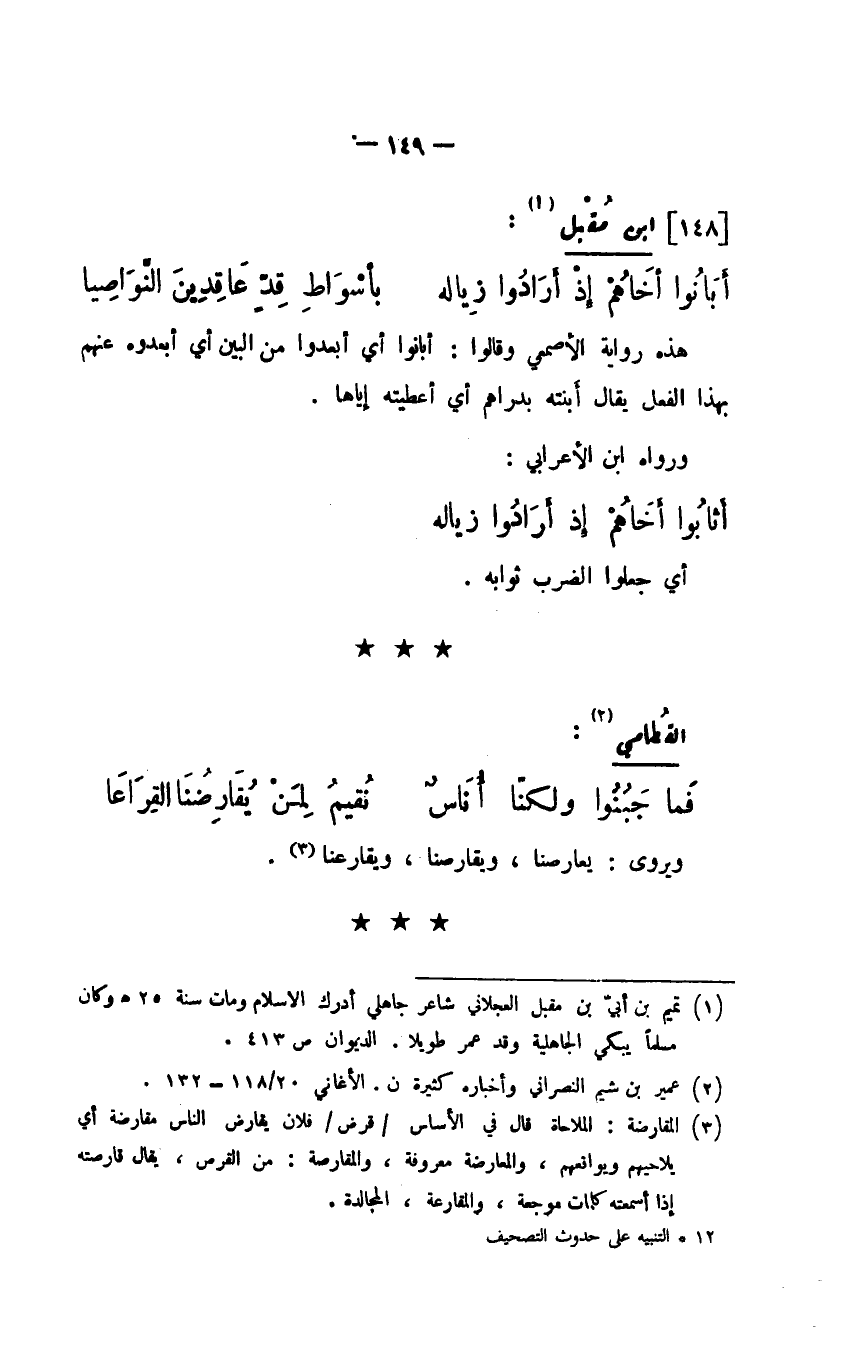 — ١٤٩ —
[١٤٨] ابن مُقْبل (١) :
أَبَانُوا أَخَاهُمْ إِذْ أَرَادُوا زِياله بأسْوَاطِ قِدٍّ عَاقِدِينَ النَّوَاصِيا
هذه رواية الأصمعي وقالوا : أبانوا أي أبعدوا من البين أي أبعدوه عنهم
بهذا الفعل يقال أَبنته بدراهم أي أعطيته إياها .
ورواه ابن الأعرابي :
أثابُوا أَخَاهُمْ إِذ أَرَادُوا زياله
أي جعلوا الضرب ثوابه .
★ ★ ★
القُطامي (٢) :
فَما جَبُنُوا ولكنّا أُنَاسٌ نُقيمُ لِمَنْ يُقَارِضُنَا القِرَاعَا
ويروى : يعارضنا ، ويقارصنا ، ويقارعنا (٣) .
★ ★ ★
(١) تميم بن أبيّ بن مقبل العجلاني شاعر جاهلي أدرك الاسلام ومات سنة ٢٥ ه وكان
مسلماً يبكي الجاهلية وقد عمر طويلا . الديوان ص ٤١٣ .
(٢) عمير بن شيم النصراني وأخباره كثيرة ن . الأغاني ١١٨/٢٠ – ١٣٢ .
(٣) المقارضة : الملاحاة قال في الأساس / قرض / فلان يقارض الناس مقارضة أي
يلاحيهم ويواقعهم ، والمعارضة معروفة ، والمقارصة : من القرص ، يقال قارصته
إذا أسمعته كلمات موجعة ، والمقارعة ، المجالدة .
١٢ ه التنبيه على حدوث التصحيف